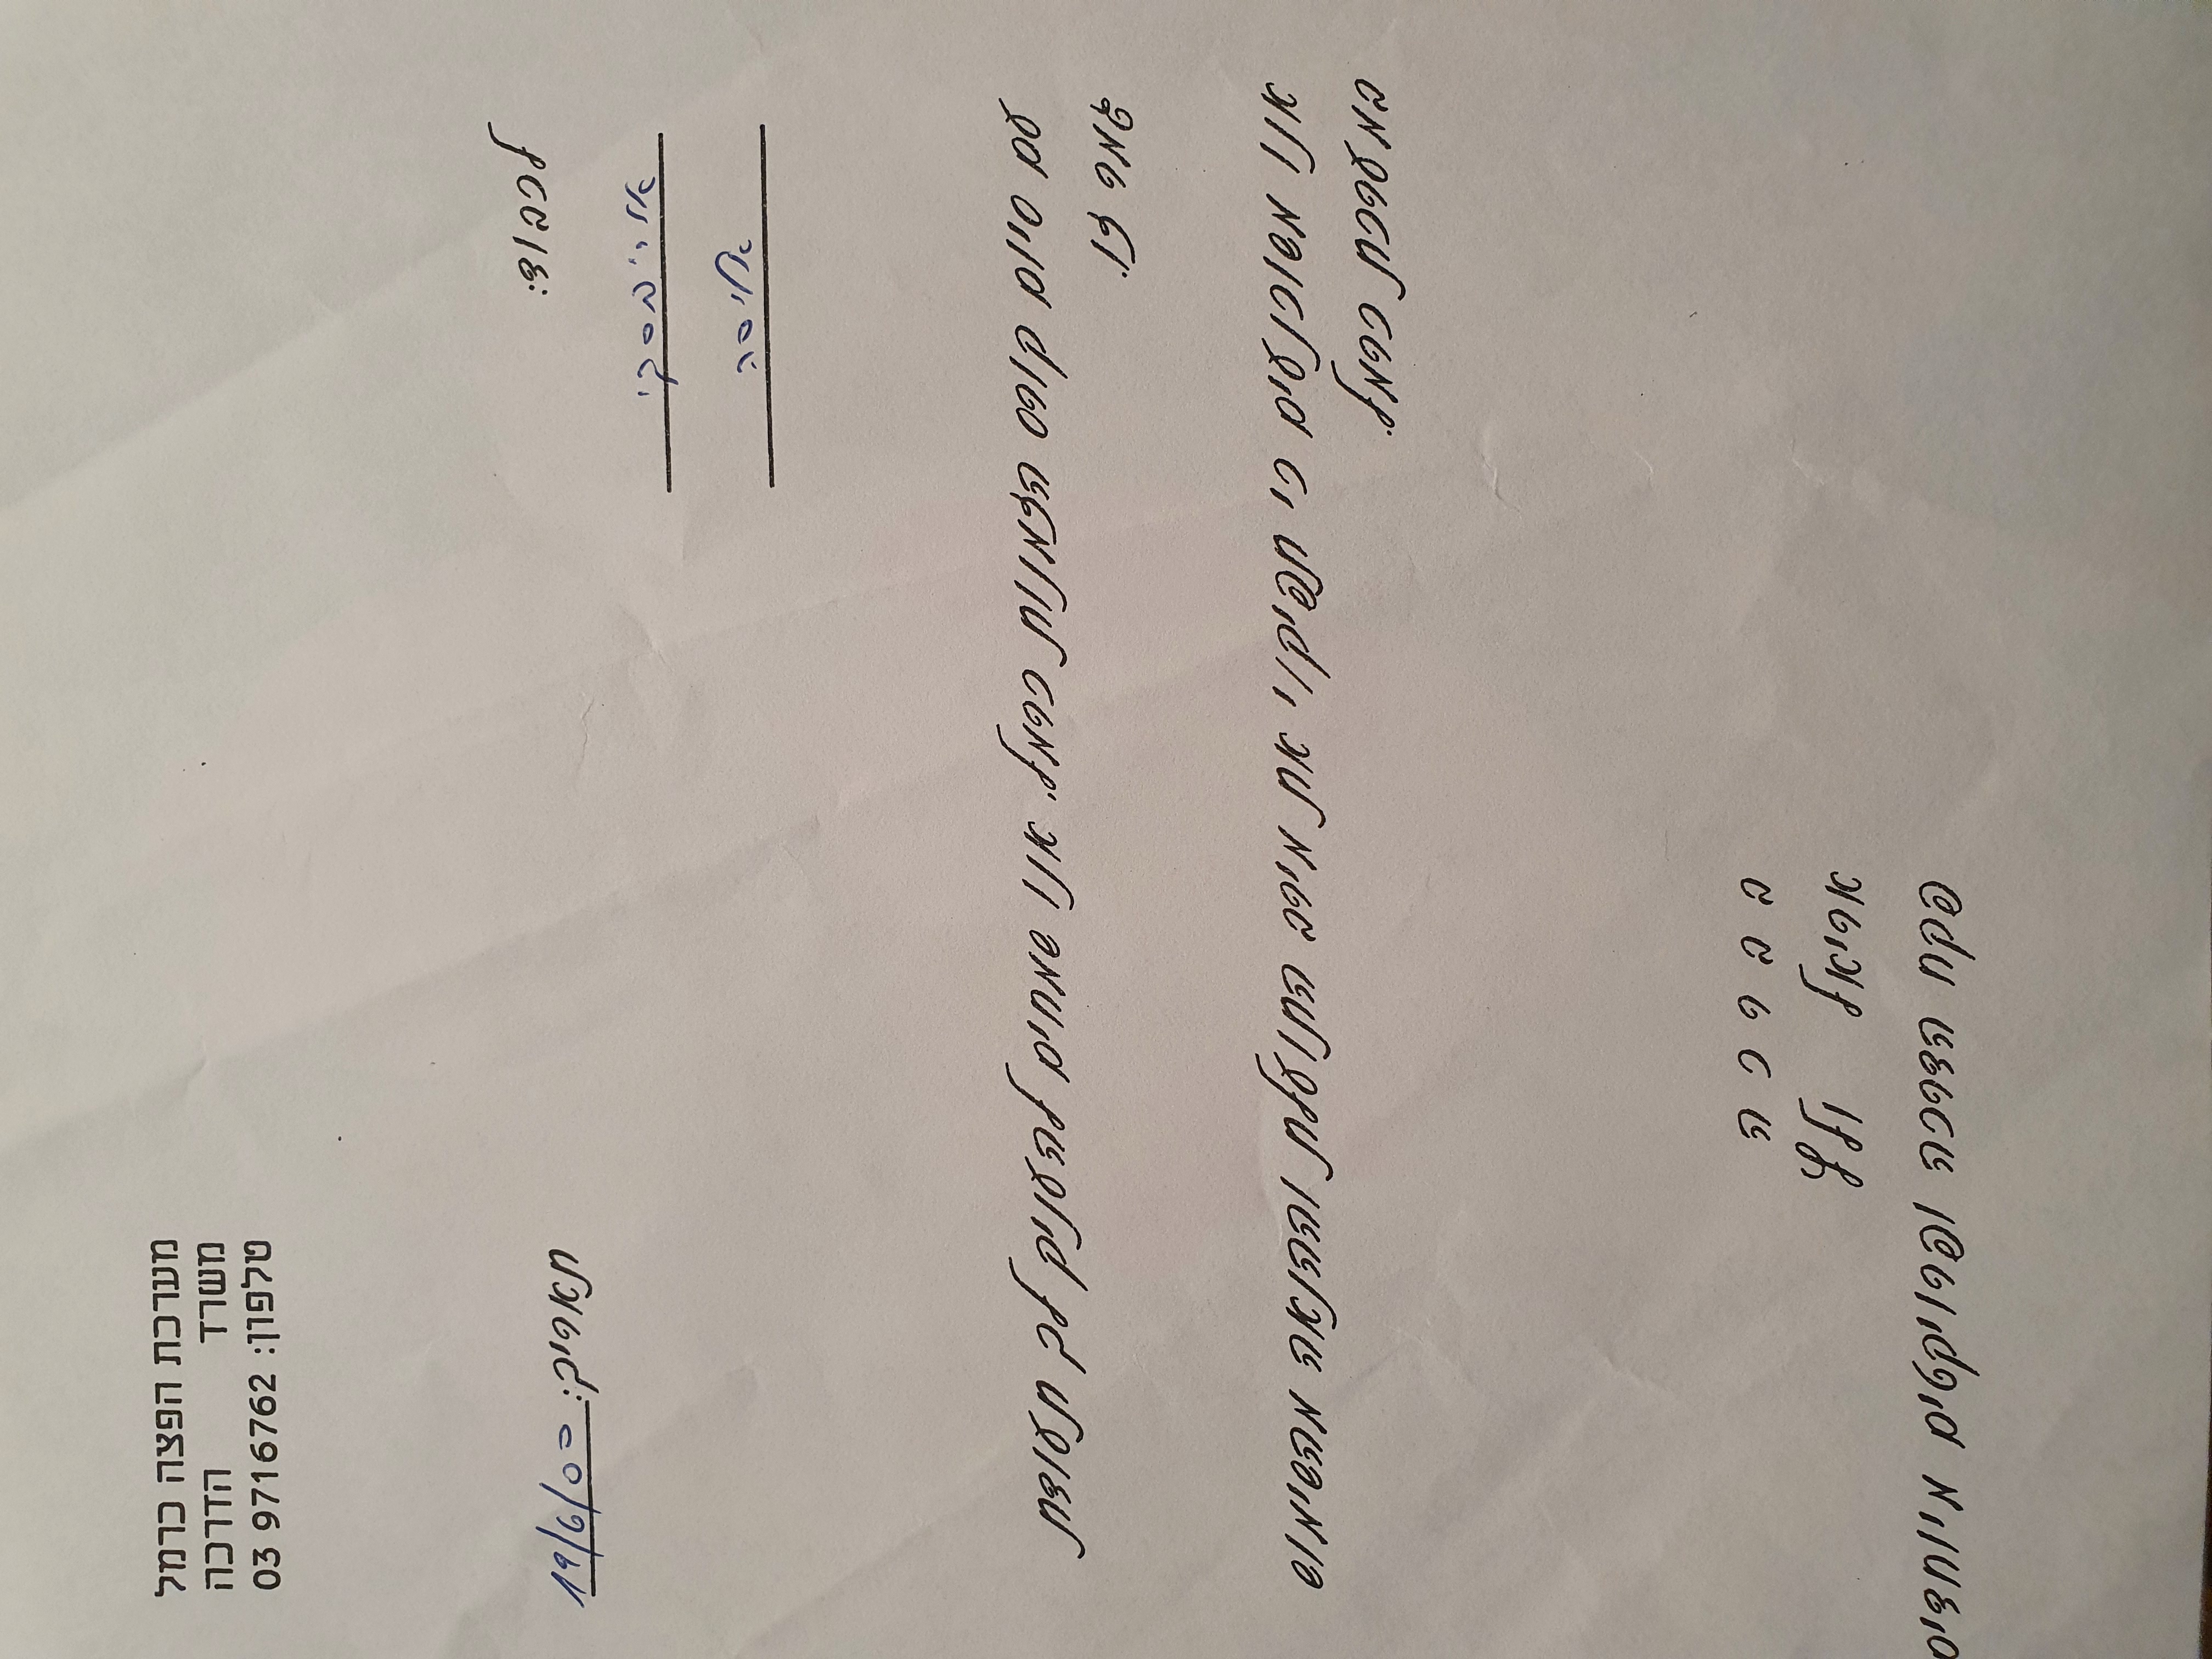 מערכת הפצה כרמל
משרד הדרכה
טלפון: 03 9716762
לכבוד:
תאריך: 19/6/00
אליסה
עם סיום קורס הזמנות כרמל, אנו שמחים להעניק לך תעודת
גמר זו.
אנו משוכנעים כי תפיק/י את מירב התועלת וההנאה מהשימוש
במערכת כרמל.
ב ב ר כ ה
אריאל ולץ
פקח הדרכה ופרויקטים מיוחדים